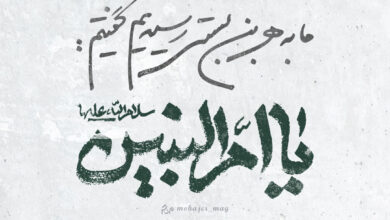 ما به هر بن بستی رسیدیم گفتیم:
یا اُمَّ البنین
سلام الله علیها
mohajer_mag